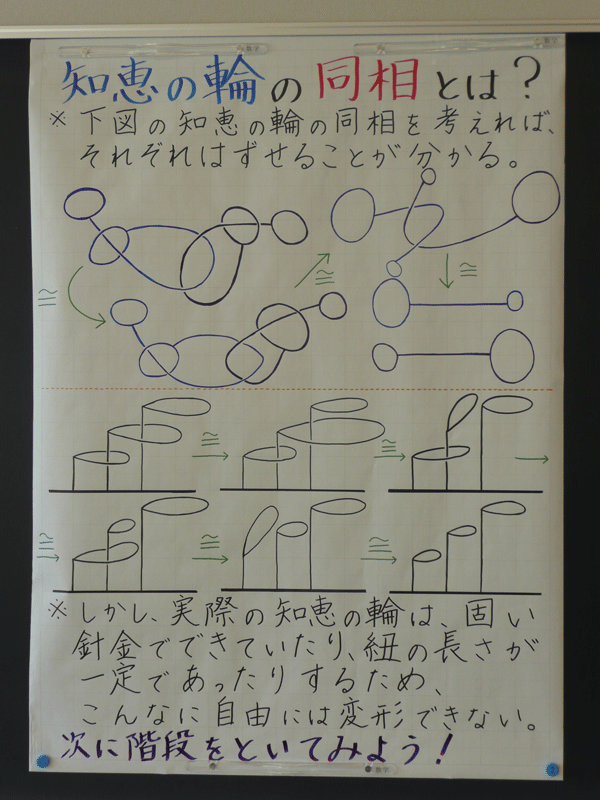 知恵の輪の同相とは?
※下図の知恵の輪の同相を考えれば、
それぞれはずせることが分かる。
≅
≅
≅
≅
≅
≅
≅
≅
※しかし、実際の知恵の輪は、固い
針金でできていたり、紐の長さが
一定であったりするため、
こんなに自由には変形できない。
次に階段をといてみよう!